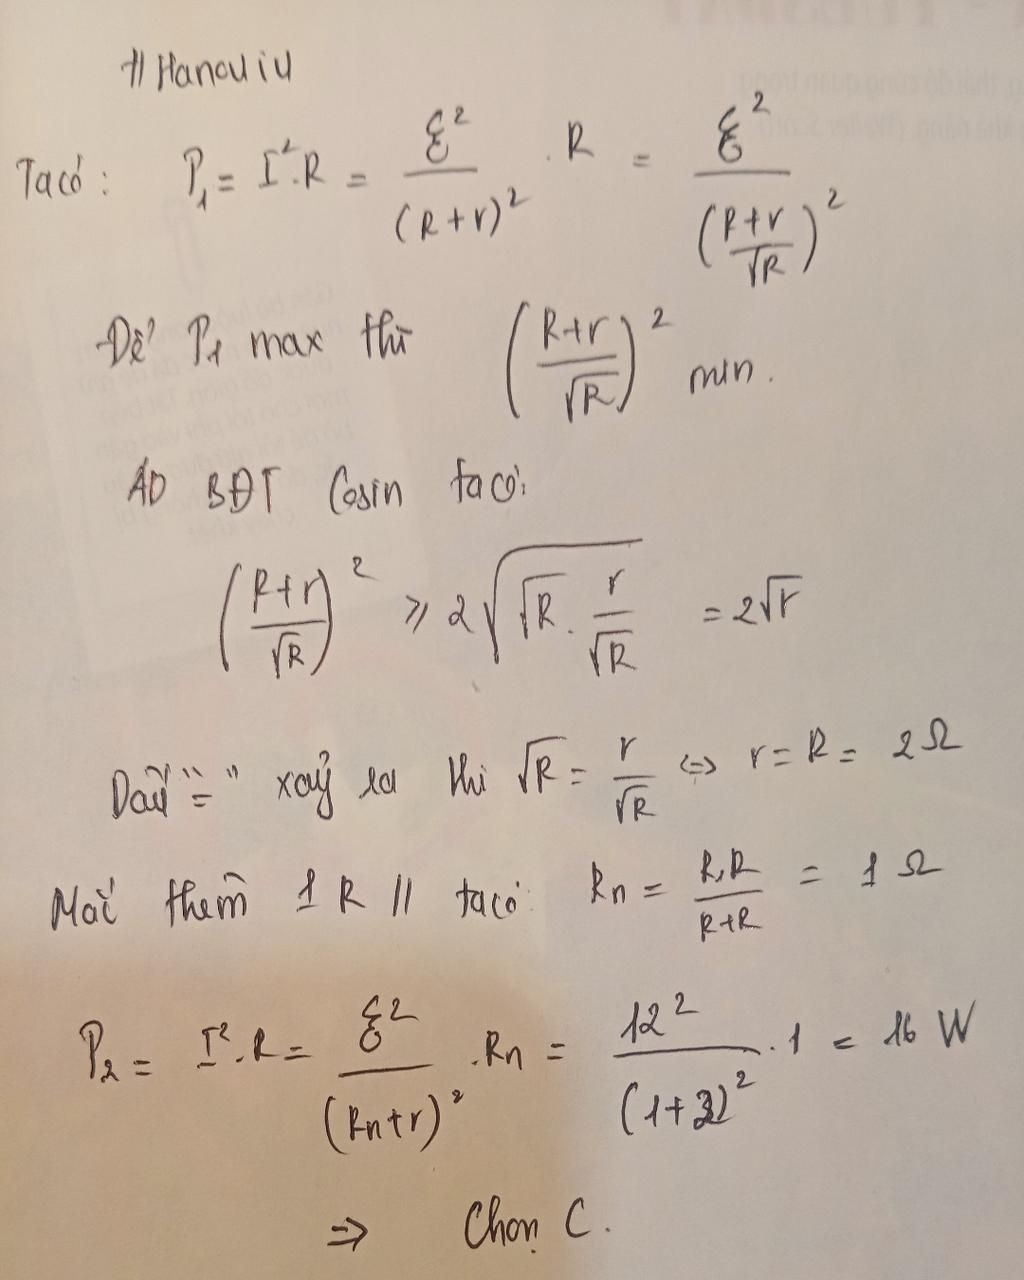 # Hanouiu
Ta có: P₁ = I².R = ℰ²/(R+r)² . R = ℰ²/((R+r)/√R)²
Để P₁ max thì ((R+r)/√R)² min.
ÁD BĐT Cosin ta có:
((R+r)/√R)² ⩾ 2√(√R . r/√R) = 2√r
Dấu "=" xảy ra khi √R = r/√R ⇔ r = R = 2Ω
Mắc thêm 1 R // ta có: Rn = R.R/(R+R) = 1Ω
P₂ = I².R = ℰ²/(Rn+r)² . Rn = 12²/(1+2)² . 1 = 16 W
⇒ Chọn C.